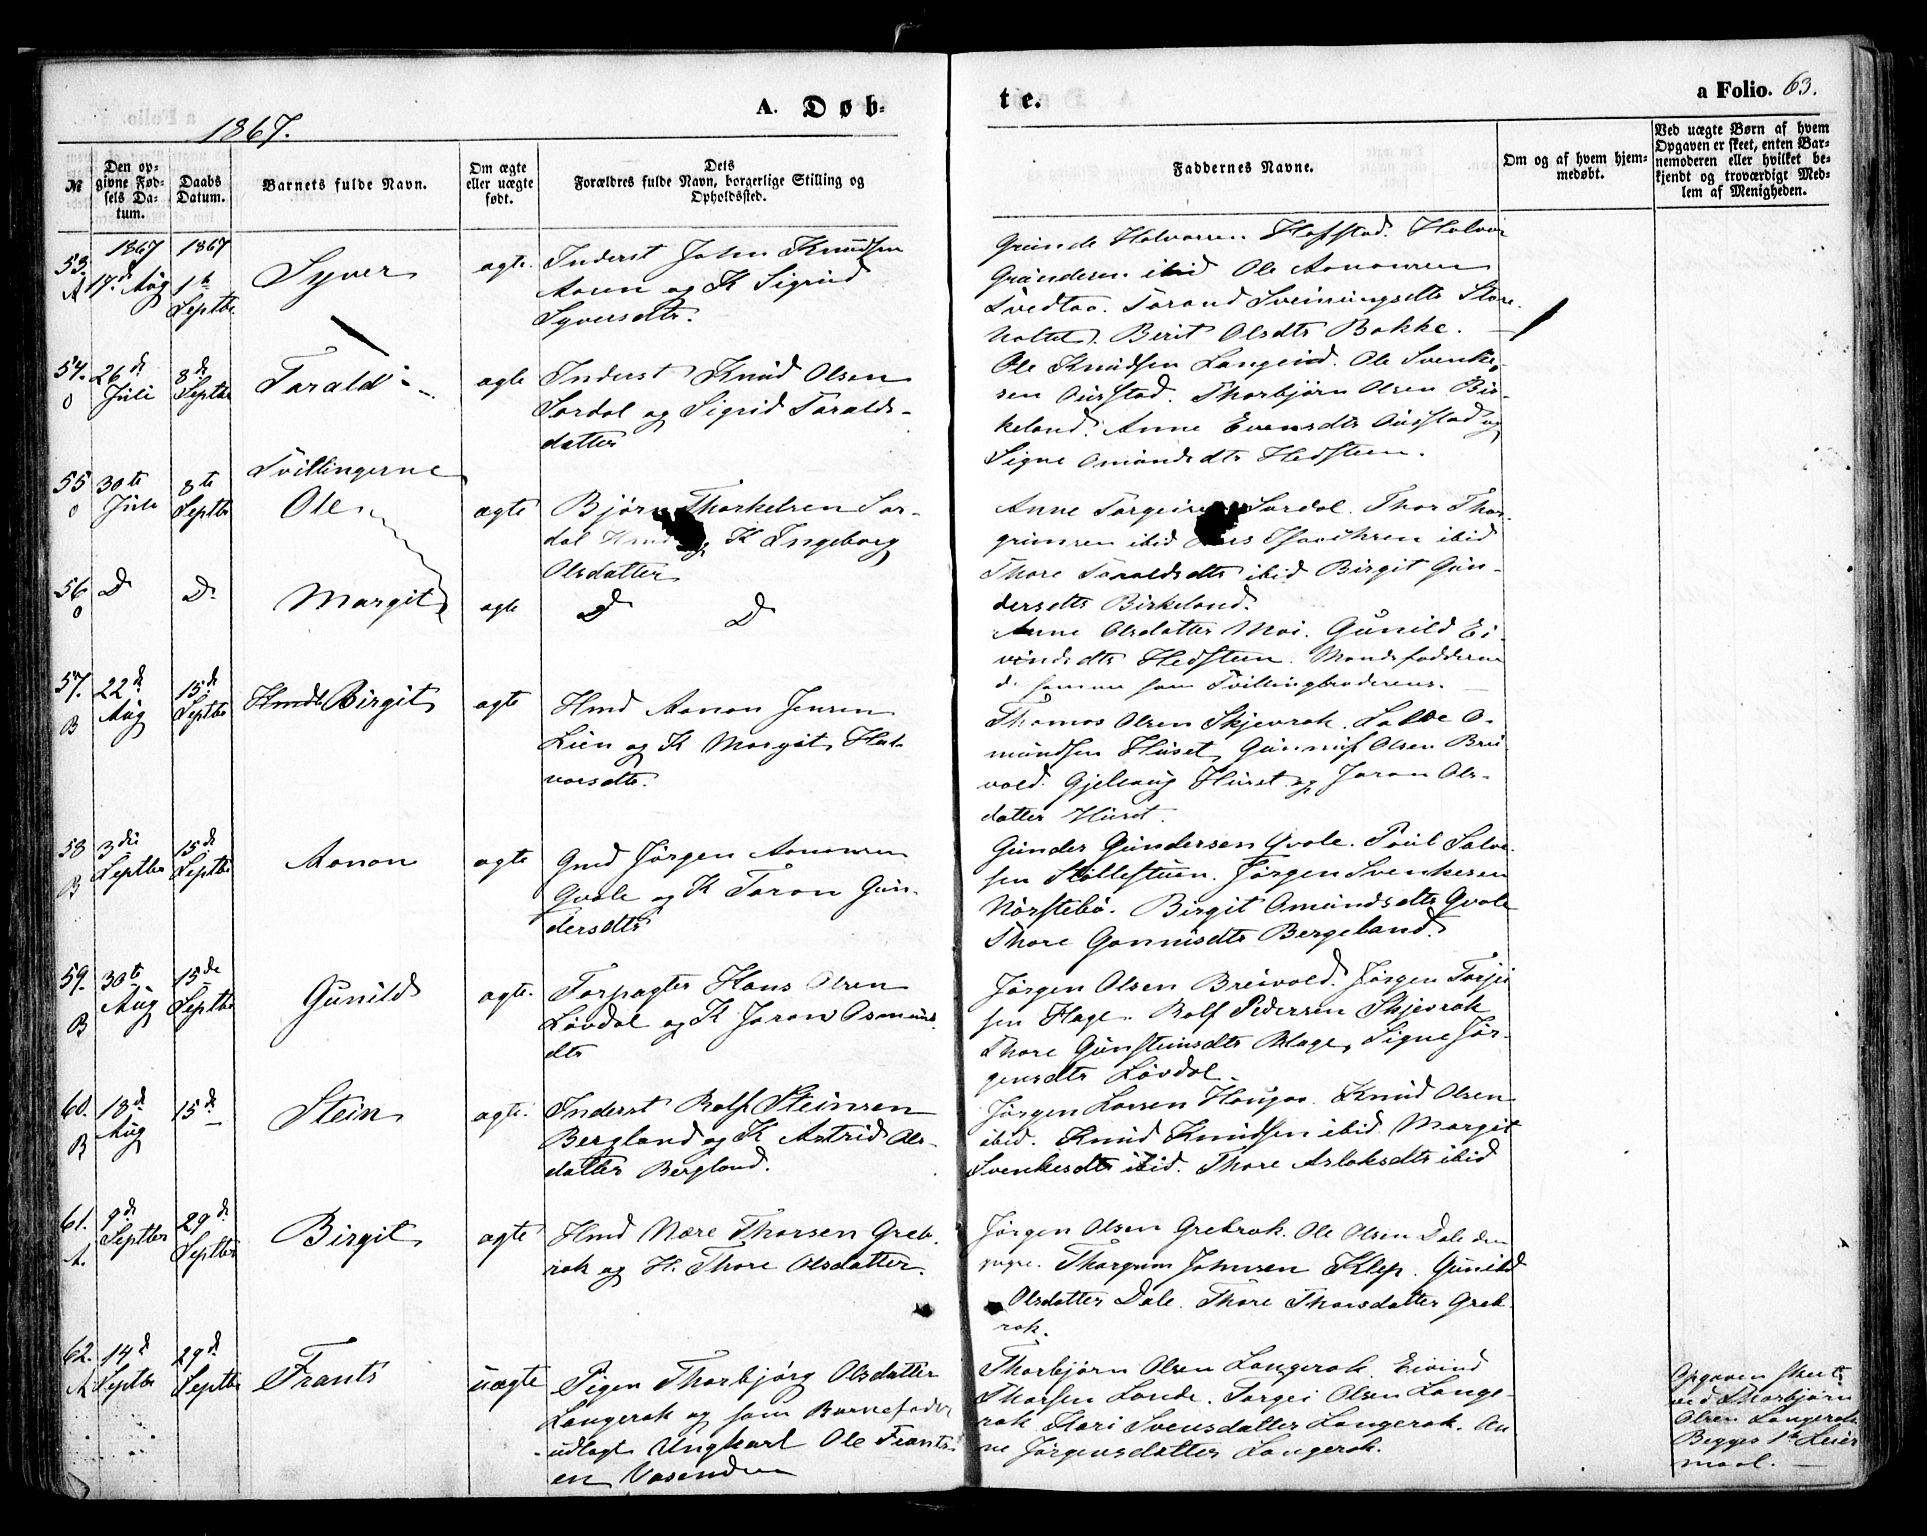 A. Døb-
te.
a Folio. 63.
1867.
№
Den op-
givne Fød-
sels Da-
tum.
Daabs
Datum.
Barnets fulde Navn.
Om ægte
eller uægte
født.
Dets
Forældres fulde Navn, borgerlige Stilling og
Opholdssted.
Faddernes Navne.
Om og af hvem hjem-
medøbt.
Ved uægte Børn af hvem
Opgaven er skeet, enten Bar-
nemoderen eller hvilket be-
kjendt og troværdigt Med-
lem af Menigheden.
53. A
1867
17de Aug
1867
1te
Septbr
Syver
ægte.
Inderst John Knudsen
Aasen og K Sigrid
Syversdtr.
Gunde Halvorsen Hofstad. Halvor
Gundersen ibid Ole Aanonsen
Tvedtaa. Torand Sveinungsdtr Store
holtet. Berit Olsdtr Bakke.
54. O
26de
Juli
8de
Septbr
Tarald
ægte
Inderst Knud Olsen
Sordal og Sigrid Taralds-
datter
Ole Knudsen Langeid. Ole Svenke-
sen Austad. Thorbjørn Olsen Bir-
keland. Anne Evensdtr Austad og
Signe Omundsdtr Hedsteen.
55 O
30te
Juli
8de
Septbr
Tvillingerne
Ole
ægte
Bjørn Thorkelsen Sor-
dal Hmd og K Ingeborg
Olsdatter
Anne Torgeirsd Sordal. Thor Thor-
grimsen ibid ibid
Thore Taraldsdtr ibid Birgit Gun-
dersdtr Birkeland.
56 O
D
D
Margit
ægte
D D
Anne Olsdatter Moi. Gunild Ei-
vindsdtr Hedsteen. Mandsfadderne
d. samme som Tvillingbroderens.
57. B
22de
Aug
15de
Septbr
Birgit
ægte
Hmd Aanon Jensen
Lien og K Margit Hal-
vorsdtr.
Thomas Olsen Skjevrak. Salve O-
mundsen Huset, Gunnuf Olsen Brei
vold. Gjellaug Huset og Joron Ols-
datter Huset.
58 B
3die
Septbr
15de
Septbr
Aanon
ægte
Gmd Jørgen Aanonsen
Qvale og K Toron Gun-
dersdtr
Gunder Gundersen Qvale. Poul Salve-
sen Stallesteen. Jørgen Svenkesen
Nørstebø. Birgit Omundsdtr Qvale
Thore Gonnisdtr Bergeland.
59. B
30te
Aug
15de
Septbr
Gunild
ægte.
Forpagter Hans Olsen
Løvdal og K Joron Osmunds
dtr
Jørgen Olsen Breivold. Jørgen Torjei
sen Hage. Rolf Pedersen Skjevrak
Thore Gunsteinsdtr Hage, Signe Jør-
gensdtr Løvdal.
60. B
18de
Aug
15de
Stein
ægte.
Inderst Rolf Steinsen
Bergland og K Astrid Ols-
datter Bergland.
Jørgen Larsen Haugaa. Knud Olsen
ibid. Knud Knudsen ibid. Margit
Svenkesdtr ibid. Thore Aslaksdtr ibid
61. A.
9de
Septbr
29de
Septbr
Birgit
ægte
Hmd Nære Thorsen Greb-
rok og K. Thore Olsdatter.
Jørgen Olsen Grebrok. Ole Olsen Dale den
yngre. Thorgrim Johnsen Klep. Gunild
Olsdatter Dale. Thore Thorsdatter Greb-
rok.
62. A
14de
Septbr
29de
Septbr
Frants
uægte
Pigen Thorbjørg Olsdatter
Langerak og som Barnefader
udlagt Ungkarl Ole Frants
en Vasenden
Thorbjørn Olsen Langerak. Eivind
Thorsen Lande. Torgei Olsen Lange-
rak Kari Svensdatter Langerak. An
ne Jørgensdatter Langerak.
Opgaven skeet
ved Thorbjørn
Olsen Langerak
Begges 1te Leier
maal.